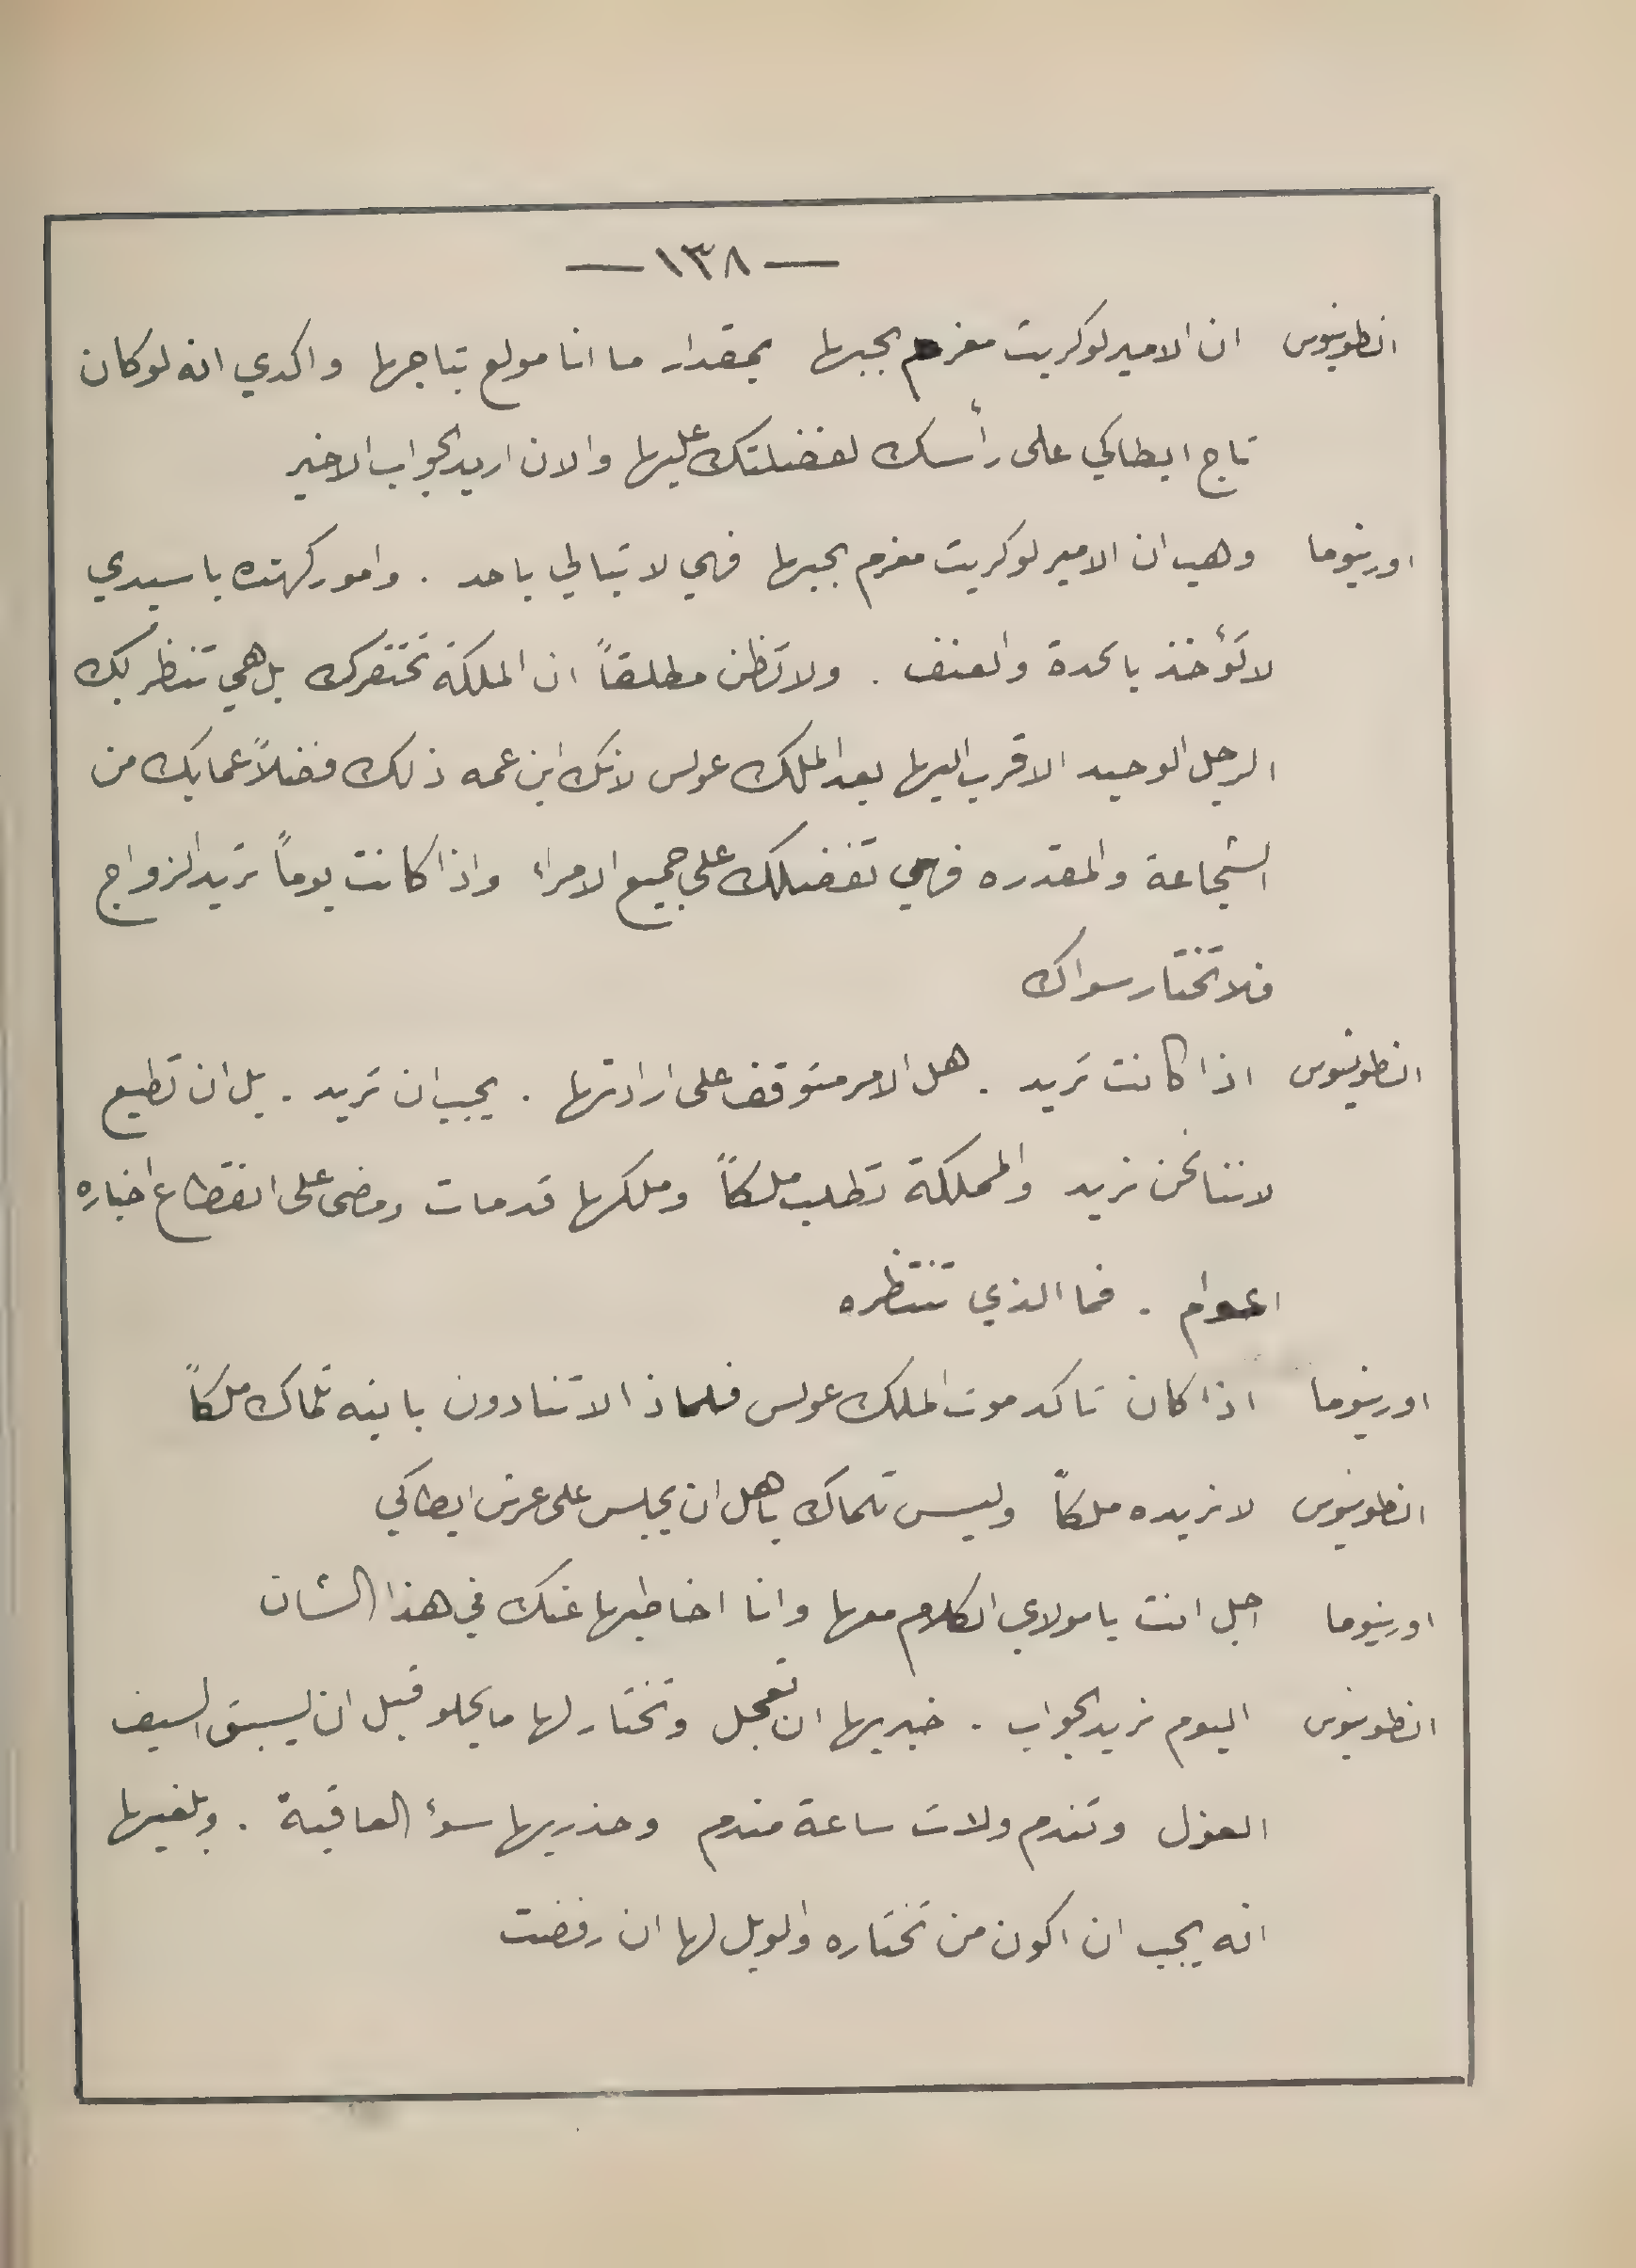 — ١٣٨ —
انطونيوس ان الامير لوكريت مغرم بحبها بمقدار ما انا مولع بتاجها واكدي انه لو كان
تاج ايطاكي على رأسك لفضلتك عليها والان اريد الجواب الاخير
اورينوما وهب ان الامير لوكريت مغرم بحبها فهي لا تبالي باحد . وامور كهذه يا سيدي
لا تؤخذ بالحدة والعنف . ولا تظن مطلقاً ان الملكة تحتقرك بل هي تنظر بك
الرجل الوحيد الاقرب اليها بعد الملك عولس لانك ابن عمه ذلك فضلاً عما بك من
الشجاعة والمقدره فهي تفضلك على جميع الامراء واذا كانت يوماً تريد الزواج
فلا تختار سواك
انطونيوس اذا كانت تريد . هل الامر متوقف على ارادتها . يجب ان تريد . بل ان تطيع
لاننا نحن نريد والمملكة تطلب ملكاً وملكها قد مات ومضى على انقطاع اخباره
اعوام . فما الذي تنتظره
اورينوما اذا كان تاكد موت الملك عولس فلماذا لا تنادون بابنه تلماك ملكاً
انطونيوس لا نريده ملكاً وليس تلماك باهل ان يجلس على عرش ايطاكي
اورينوما اجل انت يا مولاي الكلام معها وانا اخاطبها عنك في هذا الشان
انطونيوس اليوم نريد الجواب . خبريها ان تعجل وتختار لها ما يحلو قبل ان يسبق السيف
العزل وتندم ولات ساعة مندم وحذريها سوء العاقبة . وبلغيها
انه يجب ان اكون من تختاره والويل لها ان رفضت